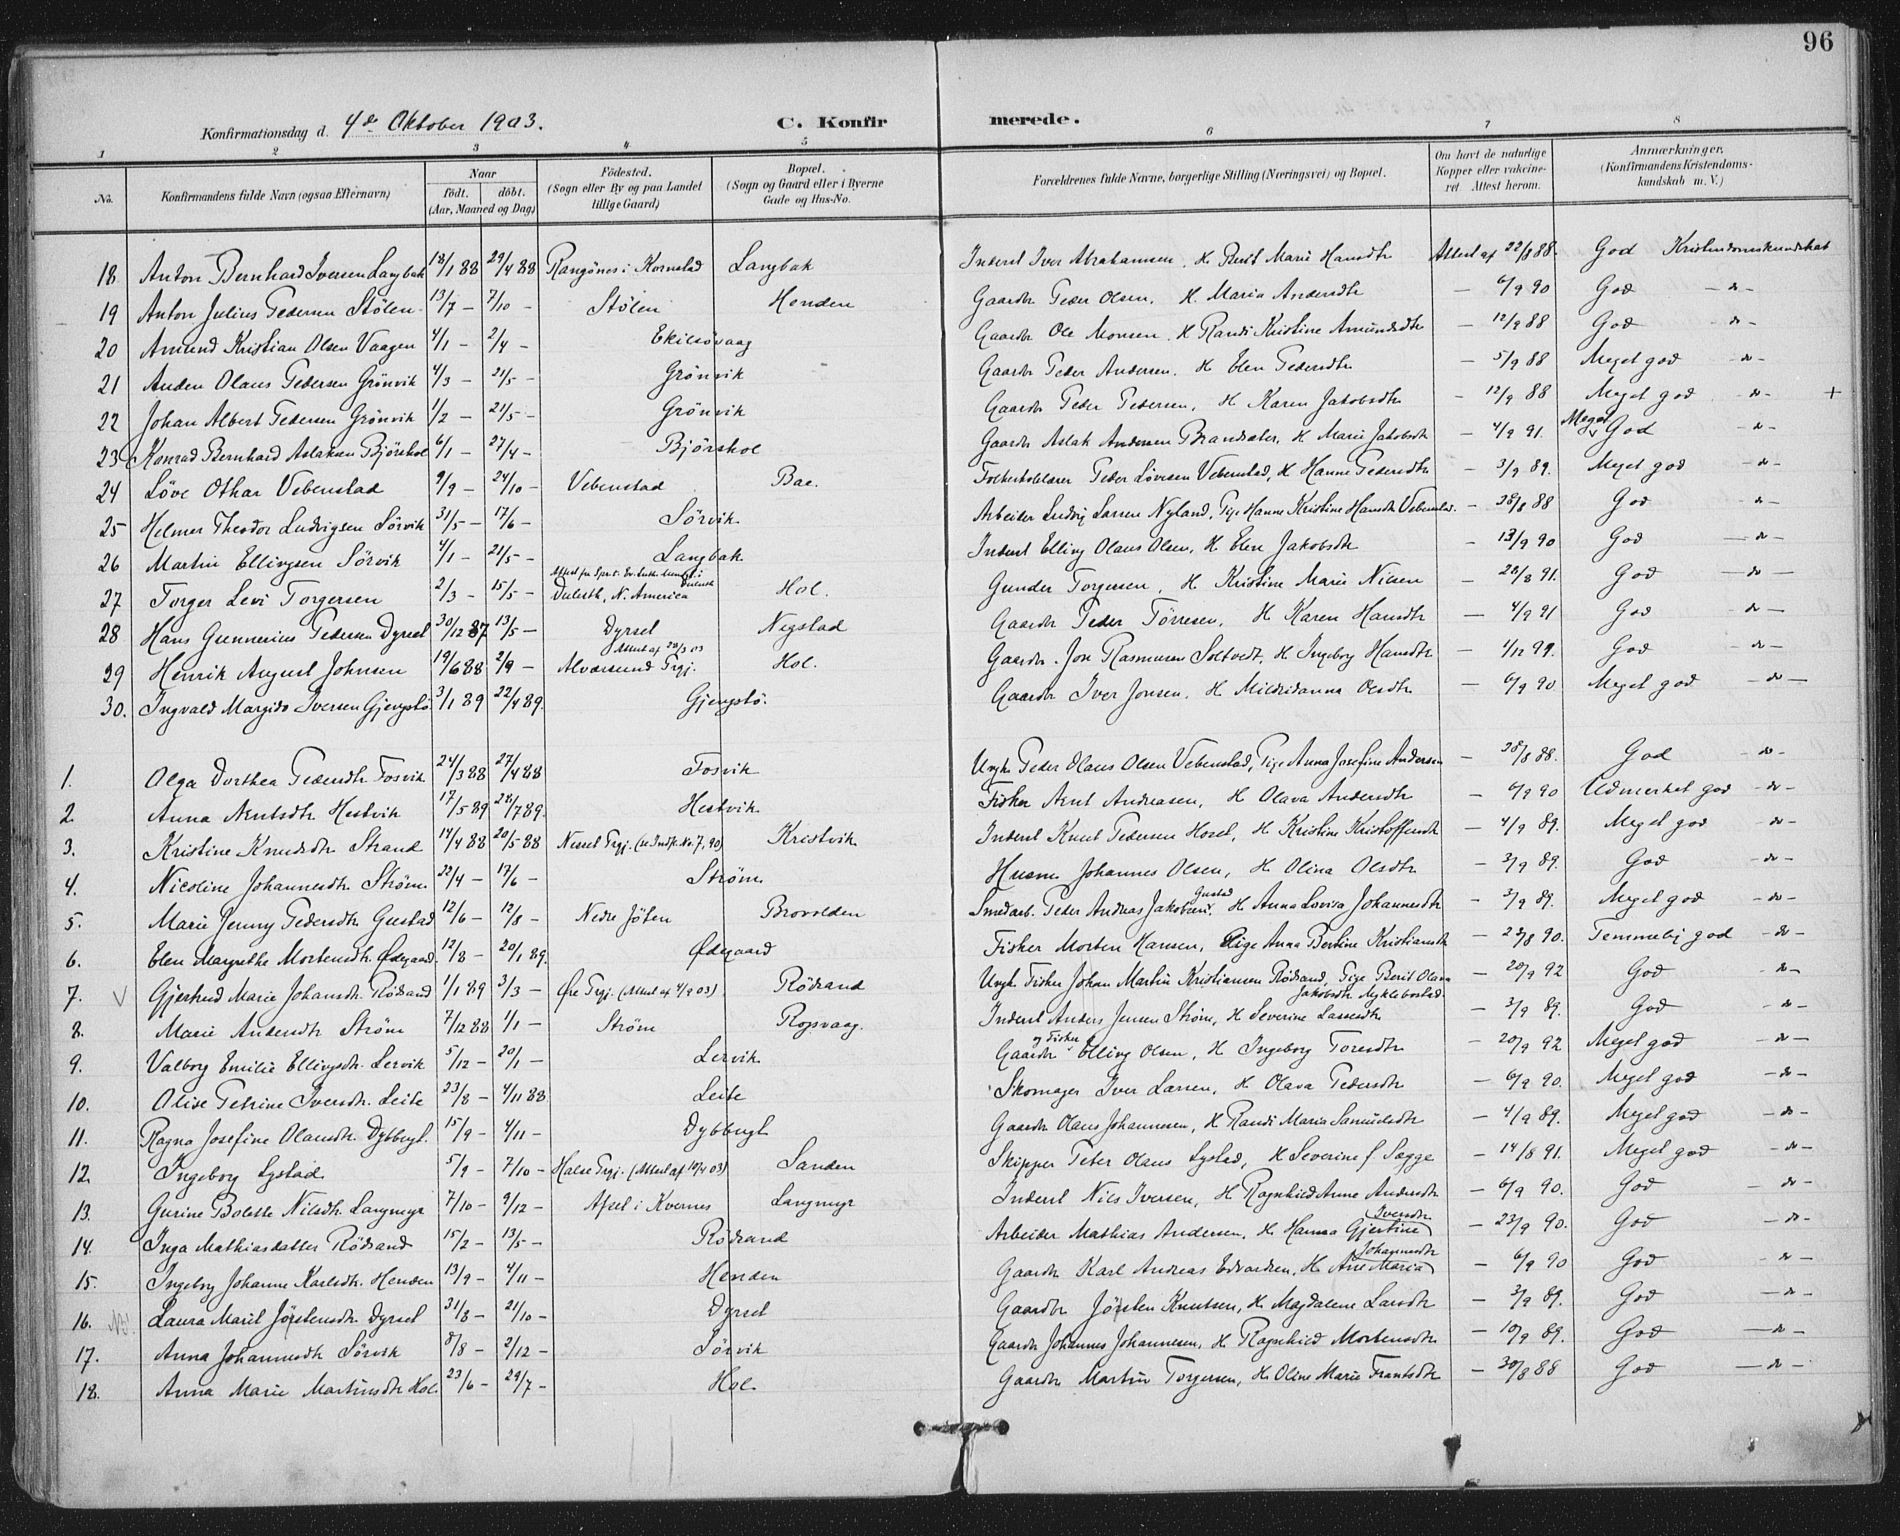 96
Konfirmationsdag d. 4de Oktober 1903. C. Konfirmerede.
1 2 3 4 5 6 7 8
No. Konfirmandens fulde Navn (ogsaa Efternavn) Naar födt. döbt. (Aar, Maaned og Dag) Födested. (Sogn eller By og paa Landet tillige Gaard) Bopæl. (Sogn og Gaard eller i Byerne Gade og Hus-No. Forældrenes fulde Navne, borgerlige Stilling (Næringsvei) og Bopæl. Om havt de naturlige Kopper eller vakcineret. Attest herom. Anmærkninger. (Konfirmandens Kristendomskundskab m. V.)
18 Anton Bernhard Iversen Langbak 18/1 88 29/4 88 Rangönes i Kornstad Langbak Inderst Iver Abrahamsen, H. Berit Marie Hansdtr Attest af 22/8 88. God Kristendomskundskab
19 Anton Julius Pedersen Stölen 13/7 — 7/10 — Stölen Henden Gaardbr Peder Olsen, H. Maria Andersdtr — 6/9 90 God — do —
20 Amund Kristian Olsen Vaagen 4/1 — 2/4 — Ekilsövaag Gaardbr Ole Monsen, H. Randi Kristine Amundsdtr — 12/9 88 God — do —
21 Anden Olaus Pedersen Grönvik 4/3 — 21/5 — Grönvik Gaardbr Peder Andersen, H. Elen Pedersdtr — 5/9 88 Meget god — do —
22 Johan Albert Pedersen Grönvik 1/2 — 21/5 — Grönvik Gaardbr Peder Pedersen, H. Karen Jakobsdtr — 12/9 88 Meget god — do — +
23 Konrad Bernhard Aslaksen Bjørshol 6/1 — 27/4 — Bjørshol Gaardbr Aslak Andersen Brandsæter, H. Marie Jakobsdtr — 4/9 91. Meget God — do —
24 Löve Othar Vebenstad 9/9 — 24/10 — Vebenstad Bae. Folkeskolelærer Peder Lövesen Vebenstad, H. Hanne Pedersdtr — 3/9 89. Meget god — do —
25 Helmer Theodor Ludvigsen Sörvik 31/5 — 17/6 — Sörvik Arbeider Ludvig Larsen Nyland, Pige Hanne Kristine Hansdtr Vebenstad — 28/8 88 God — do —
26 Martin Ellingsen Sörvik 4/1 — 21/5 — Langbak Inderst Elling Olaus Olsen, H. Elen Jakobsdtr — 13/9 90 God — do —
27 Torger Levi Torgersen 2/3 — 15/5 — Duluth, N. America Hol. Gunder Torgersen, H. Kristine Marie Nilsen — 28/8 91. God — do —
28 Hans Gunnerius Pedersen Dyrset 30/12 87 13/5 — Dyrset Negstad Gaardbr Peder Törresen, H. Karen Hansdtr — 4/9 91 God — do —
29 Henrik August Johnsen 19/6 88 2/9 — Attest af 22/3 03 Alversund Prgj. Hol. Gaardbr. Jon Rasmusen Soltvedt, H. Ingeborg Hansdtr — 4/12 99. God — do —
30. Ingvald Margido Iversen Gjengstö. 3/1 89 22/4 89. Gjengstö. Gaardbr Iver Jonsen, H. Mildridanna Olsdtr — 6/9 90 Meget god — do —
1. Olga Dorthea Pedersdtr Fosvik 24/3 88 27/4 88 Fosvik Ungk. Peder Olaus Olsen Vebenstad, Pige Anna Josefine Andersen — 28/8 88. God — do —
2. Anna Arntsdtr Hestvik 17/5 89 28/7 89. Hestvik Fisker Arnt Andreasen, H. Olava Andersdtr — 6/9 90 Udmerket god — do —
3. Kristine Knudsdtr Strand 14/4 88 20/5 88 Nesset Prgj. (se Indfl. No. 7, 90) Kristvik Inderst Knut Pedersen Hoset, H. Kristine Kristoffersdtr — 4/9 89. Meget god — do —
4. Nicoline Johannesdtr. Ström 22/4 — 17/6 — Ström Husm. Johannes Olsen, H. Olina Olsdtr — 3/9 89. God — do —
5. Marie Jenny Pedersdtr Gustad 12/6 — 12/8 — Nedre Jöten Brovolden Smedarb. Peder Andreas Jakobsen Gustad, H. Anna Lovisa Johannesdtr — 3/9 89. Meget god — do —
6. Elen Margrethe Mortensdtr. Ødegaard. 12/8 — 20/1 89. Ødegaard Fisker Morten Hansen, Pige Anna Bertine Kristiansdtr — 22/8 90. Temmelig god — do —
7. V Gjertrud Marie Johansdtr. Rödsand 1/1 89 3/3 — Øre Prgj. (Attest af 4/9 03) Rödsand Ungk. Fisker Johan Martin Kristiansen Rödsand, Pige Berit Olava Jakobsdtr Myklebostad — 20/9 92 God — do —
8. Marie Andersdtr Ström 7/12 88 1/1 — Ström Ropsvaag. Inderst Anders Jensen Ström, H. Severine Lassesdtr — 3/9 89. God — do —
9. Valborg Emilie Ellingsdtr. Lervik 5/12 — 20/1 — Lervik Gaardbr og Fisker Elling Olsen, H. Ingeborg Toresdtr — 20/9 92 Meget god — do —
10. Olise Petrine Iversdtr. Leite 23/8 — 4/11 88. Leite Skomager Iver Larsen, H. Olava Pedersdtr — 6/9 90. Meget god — do —
11. Ragna Josefine Olausdtr. Dybbugt. 15/9 — 4/11 — Dybbugt Gaardbr Olaus Johannesen, H. Randi Maria Samuelsdtr — 4/9 89. Meget god — do —
12. Ingeborg Lystad 5/9 — 7/10 — Halse Prgj. (Attest af 10/4 03) Sanden Skipper Peter Olaus Lystad, H. Severine f. Sagge — 14/8 91. Meget god — do —
13. Gurine Bolette Nilsdtr. Langmyr 7/10 — 9/12 — Apsel i Kvernes Langmyr Inderst Nils Iversen, H. Ragnhild Anne Andersdtr — 6/9 90. God — do —
14. Inga Mathiasdatter Rödsand 15/2 — 13/5 — Rödsand Arbeider Mathias Andersen, H. Hanna Gjertine Iversdtr — 23/9 90. God — do —
15. Ingeborg Johanne Karlsdtr. Henden 13/9 — 4/11 — Henden Gaardbr Karl Andreas Edvardsen, H. Ane Maria Johannesdtr — 6/9 90 God — do —
16. Laura Marit Jörstensdtr. Dyrset 31/8 — 21/10 — Dyrset Gaardbr Jörsten Knutsen, H. Magdalene Larsdtr — 3/9 89. God — do —
17. Anna Johannesdtr Sörvik 8/8 — 2/12 — Sörvik Gaardbr Johannes Johannesen, H. Ragnhild Mortensdtr — 10/9 89. God — do —
18. Anna Marie Martinsdtr Hol. 23/6 — 29/7 — Hol. Gaardbr Martin Torgersen, H. Oline Marie Frantsdtr — 30/8 88 God — do —